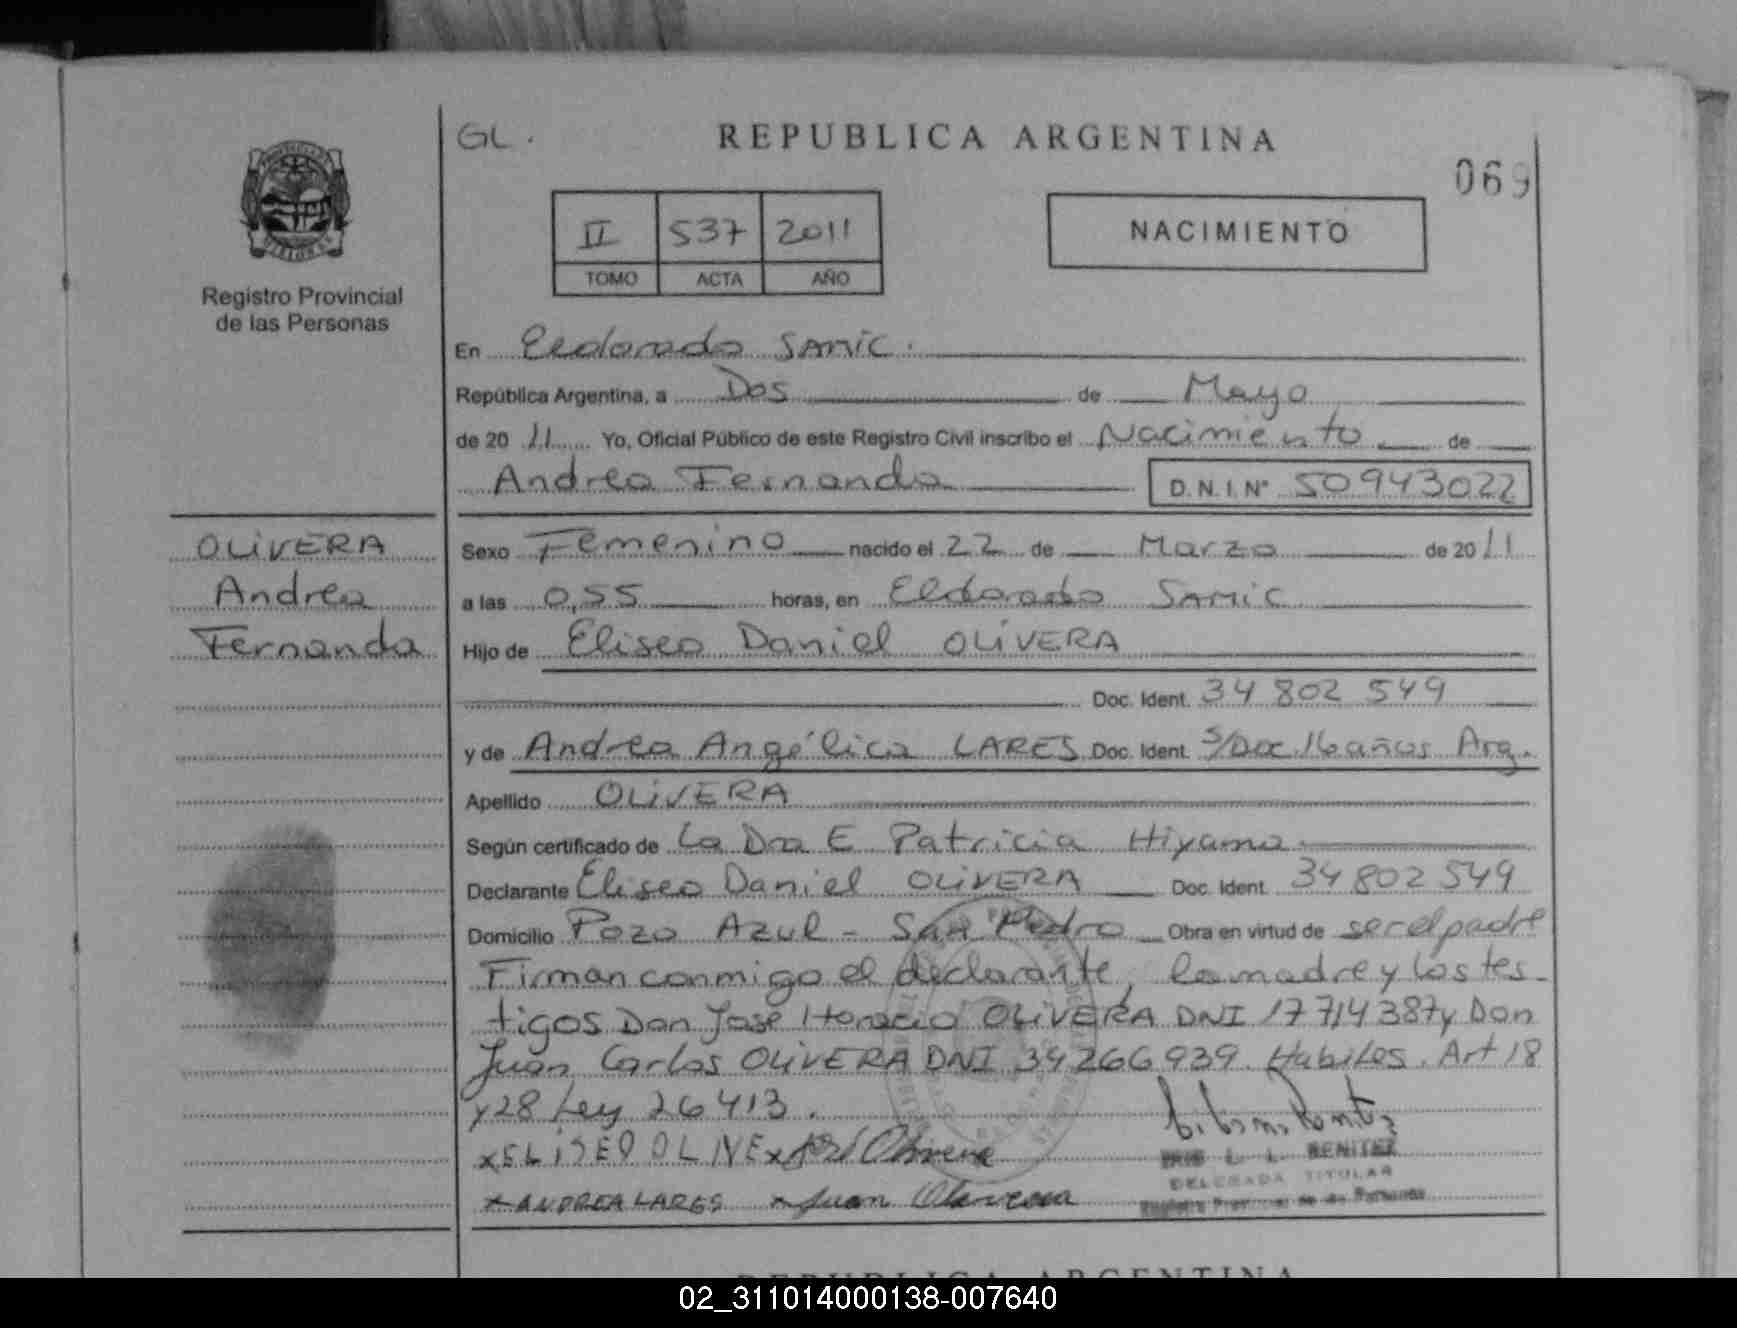 GL.
REPUBLICA ARGENTINA
069
II 537 2011
TOMO ACTA AÑO
NACIMIENTO
Registro Provincial
de las Personas
En Eldorado SAMIC.
República Argentina, a Dos de Mayo
de 2011 Yo, Oficial Público de este Registro Civil inscribo el Nacimiento de
Andrea Fernanda D.N.I.Nº 50943022
OLIVERA
Andrea
Fernanda
Sexo Femenino nacido el 22 de Marzo de 2011
a las 0,55 horas, en Eldorado SAMIC
Hijo de Eliseo Daniel OLIVERA
Doc. Ident. 34 802 549
y de Andrea Angélica LARES Doc. Ident. S/Doc 16 años Arg.
Apellido OLIVERA
Según certificado de La Dra E Patricia Hiyama
Declarante Eliseo Daniel OLIVERA Doc. Ident. 34 802 549
Domicilio Pozo Azul - San Pedro Obra en virtud de ser el padre
Firman conmigo el declarante, la madre y los tes-
tigos Don José Horacio OLIVERA DNI 17 714 387 y Don
Juan Carlos OLIVERA DNI 34 266 939. Habiles. Art 18
y 28 Ley 26 413.
x ELISEO OLIVE x José Olivera
x ANDREA LARES x Juan Olivera
L. L. BENITEZ
DELEGADA TITULAR
Registro Provincial de las Personas
REPUBLICA ARGENTINA
02_311014000138-007640